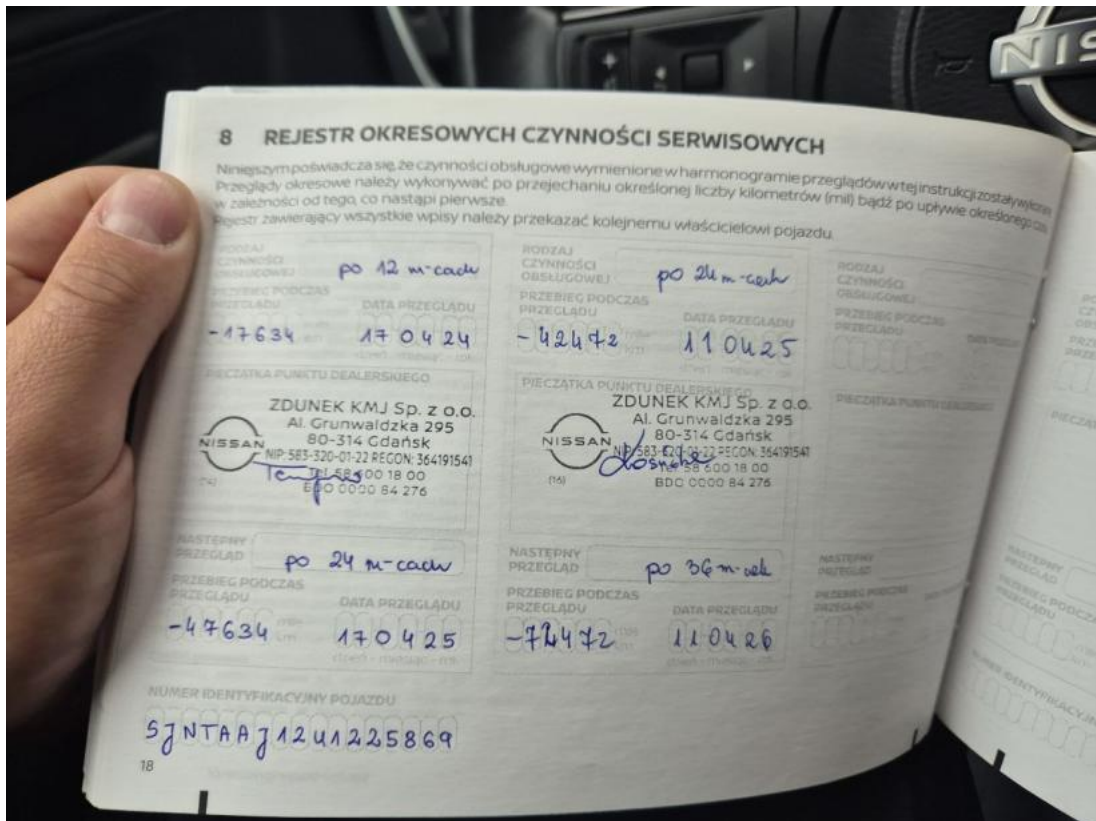 NISS
8 REJESTR OKRESOWYCH CZYNNOŚCI SERWISOWYCH
Niniejszym poświadcza się, że czynności obsługowe wymienione w harmonogramie przeglądów w tej instrukcji zostały
Przeglądy okresowe należy wykonywać po przejechaniu określonej liczby kilometrów (mil) bądź po upływie określonego
w zależności od tego, co nastąpi pierwsze.
Rejestr zawierający wszystkie wpisy należy przekazać kolejnemu właścicielowi pojazdu.
RODZAJ
CZYNNOŚCI
OBSŁUGOWEJ
po 12 m-cach
PRZEBIEG PODCZAS
PRZEGLĄDU
DATA PRZEGLĄDU
-17634
170424
PIECZĄTKA PUNKTU DEALERSKIEGO
ZDUNEK KMJ Sp. z o.o.
Al. Grunwaldzka 295
80-314 Gdańsk
NISSAN
NIP: 583-320-01-22 REGON: 364191541
Tel. 58 600 18 00
BDO 0000 84 276
(14)
NASTĘPNY
PRZEGLĄD
po 24 m-cach
PRZEBIEG PODCZAS
PRZEGLĄDU
DATA PRZEGLĄDU
-47634
170425
RODZAJ
CZYNNOŚCI
OBSŁUGOWEJ
po 24 m-cach
PRZEBIEG PODCZAS
PRZEGLĄDU
DATA PRZEGLĄDU
-42472
110425
PIECZĄTKA PUNKTU DEALERSKIEGO
ZDUNEK KMJ Sp. z o.o.
Al. Grunwaldzka 295
80-314 Gdańsk
NISSAN
NIP: 583-320-01-22 REGON: 364191541
Tel. 58 600 18 00
BDO 0000 84 276
(16)
NASTĘPNY
PRZEGLĄD
po 36 m-cek
PRZEBIEG PODCZAS
PRZEGLĄDU
DATA PRZEGLĄDU
-72472
110426
RODZAJ
CZYNNOŚCI
OBSŁUGOWEJ
PRZEBIEG PODCZAS
PRZEGLĄDU
PIECZĄTKA PUNKTU DEALERSKIEGO
NASTĘPNY
PRZEGLĄD
PRZEBIEG PODCZAS
PRZEGLĄDU
NUMER IDENTYFIKACYJNY POJAZDU
SJNTAAJ12U1225869
18